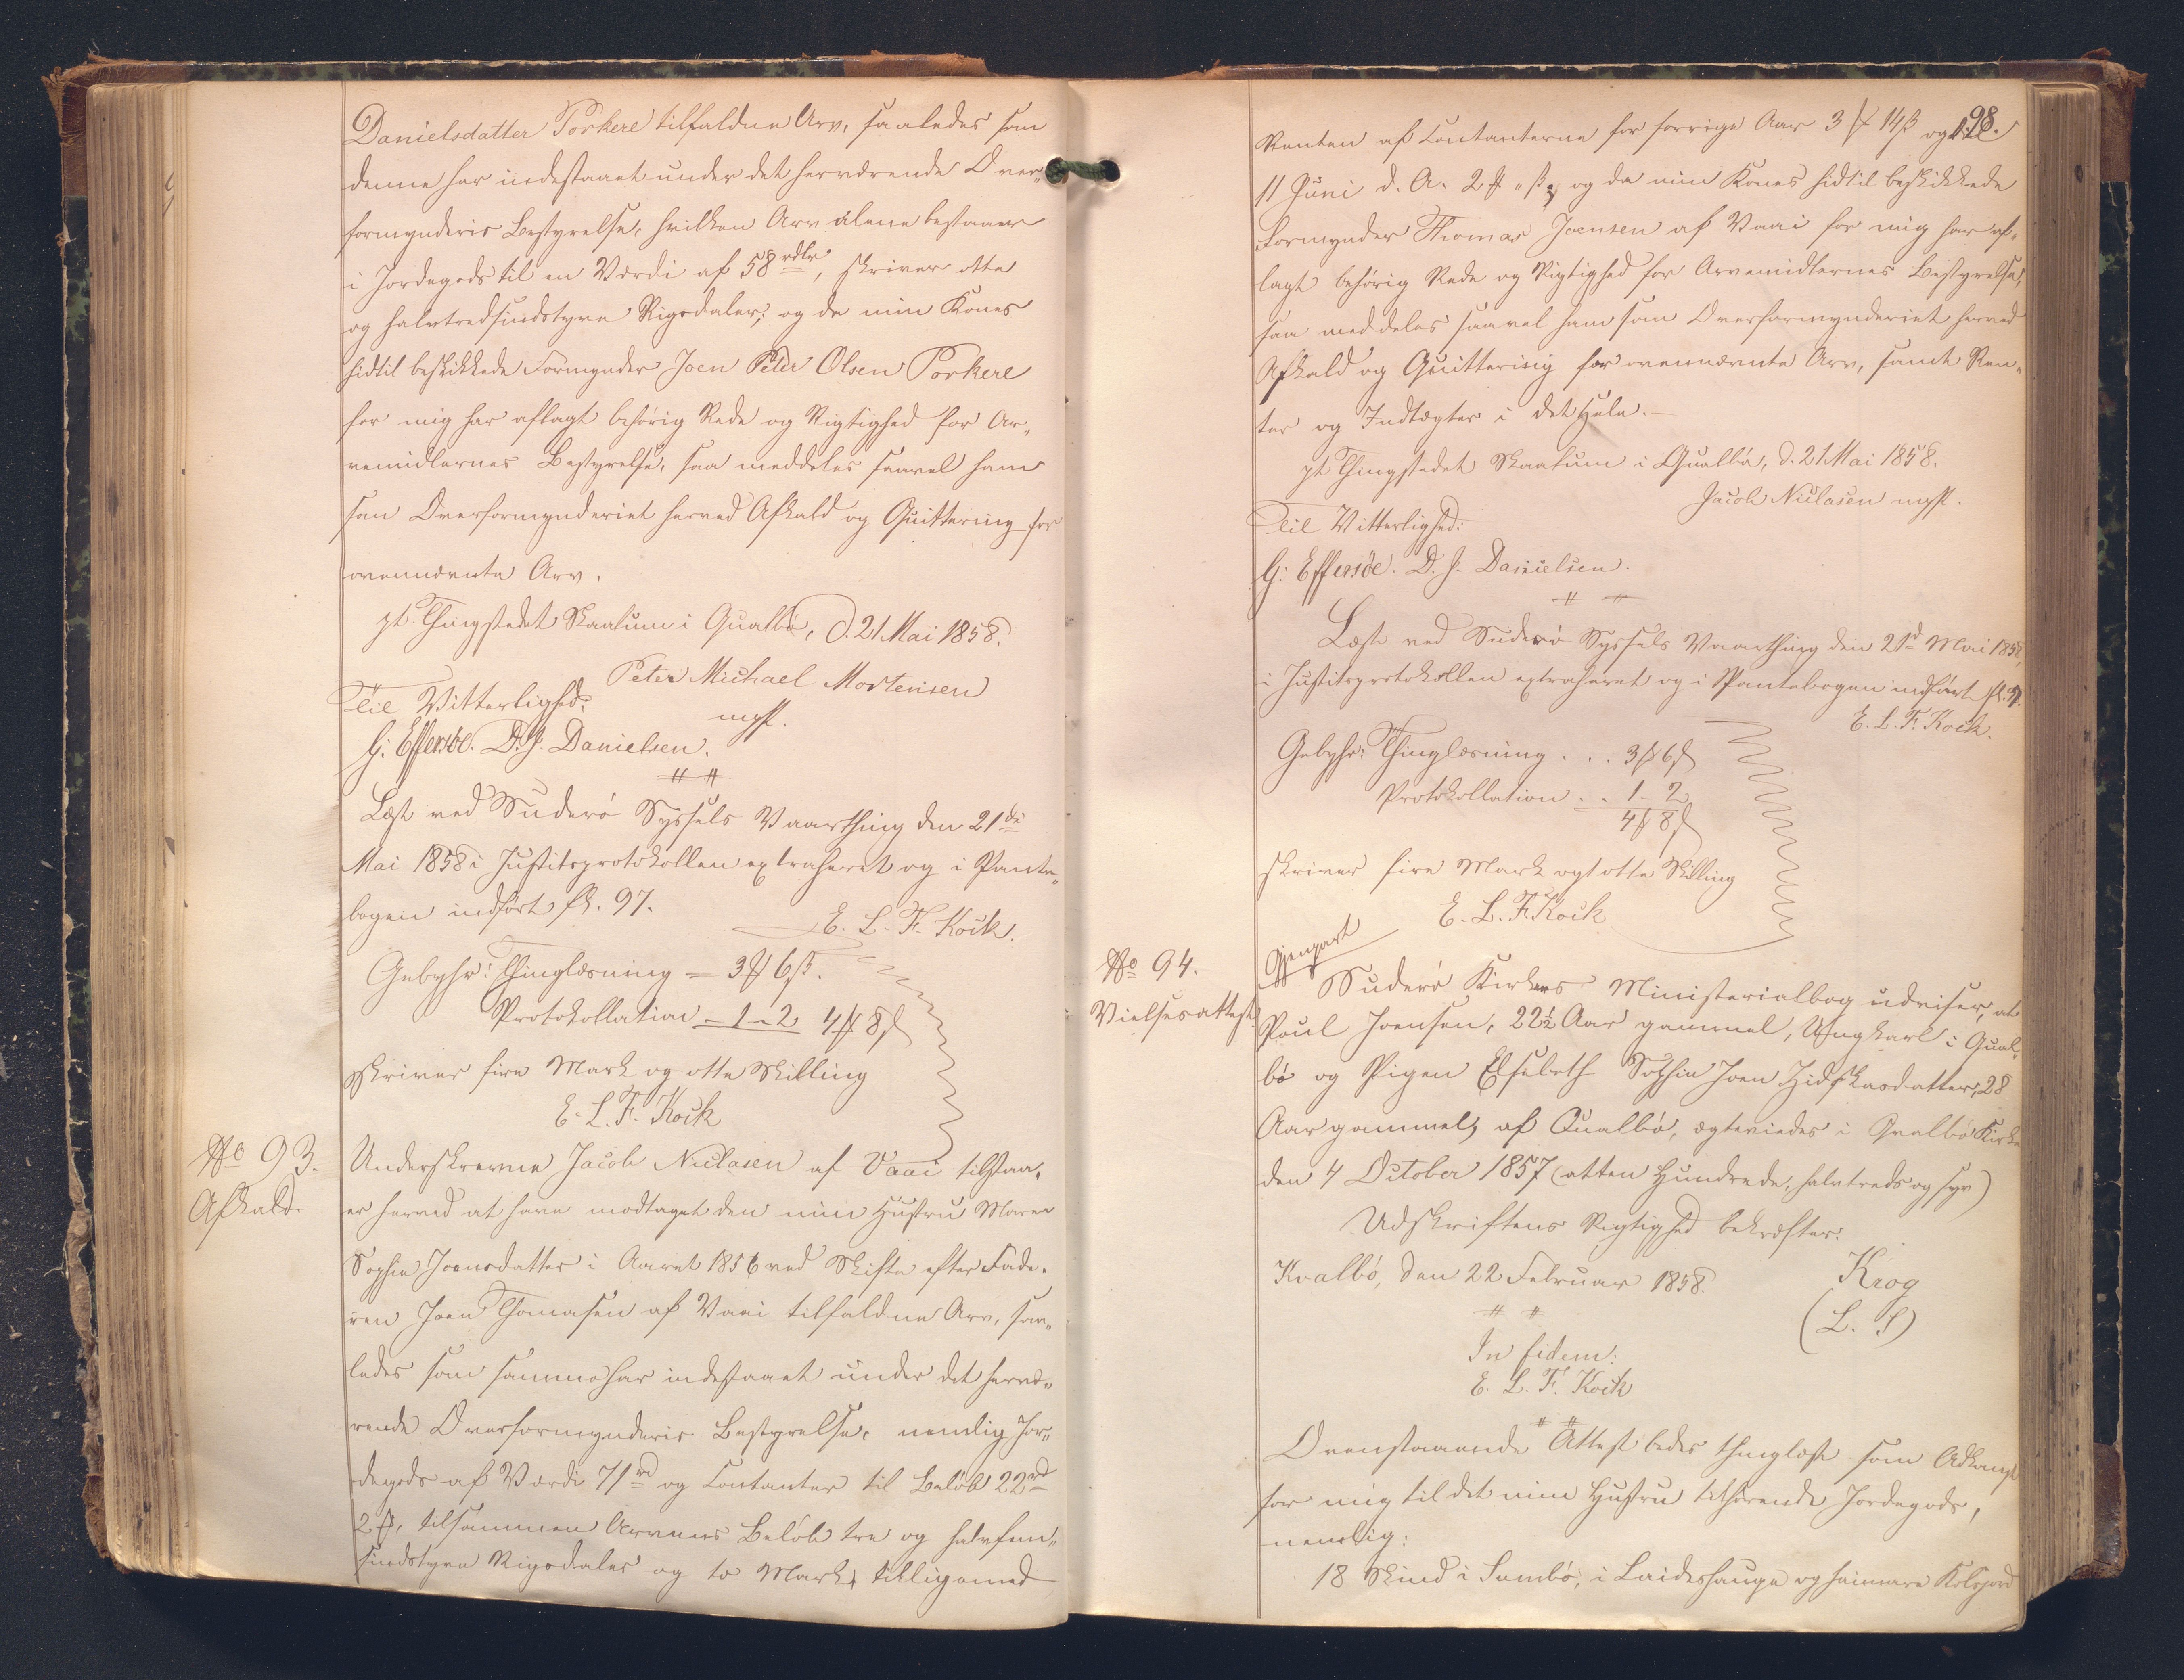 Danielsdatter Porkere tilfaldne Arv, saaledes som
denne har indestaaet under det herværende Over„
formynderis Bestyrelse, hvilken Arv alene bestaaer
i Jordegods til en Værdi af 58 rdlr, skriver otte
og halvtredsindstyve Rigsdaler; og da min Kones
hidtil beskikkede Formynder Joen Peter Olsen Porkere
for mig har aflagt behørig Rede og Rigtighed for Ar„
vemidlernes Bestyrelse, saa meddeles saavel ham
som Overformynderiet herved Afkald og Quittering for
ovennævnte Arv.
pt. Thingstedet Skaalum i Qualbø, d. 21 Mai 1858.
Peter Michael Mortensen
Til Vitterlighed:
mpp.
G: Effersöe. D. J. Danielsen.
Læst ved Suderø Syssels Vaarthing den 21de
Mai 1858 i Justitsprotokollen extraheret og i Pante„
bogen indført fol. 97.
E. L. F. Kock.
Gebyhr: Thinglæsning = 3 ₰ 6 β.
Protokollation – 1 - 2 4 ₰ 8 β
skriver fire Mark og otte Skilling
E. L. F. Kock
No 93.
Afkald.
Underskrevne Jacob Niclasen af Vaai tilstaa„
er herved at have modtaget den min Hustru Maren
Sophie Joensdatter i Aaret 1856 ved Skifte efter Fade„
ren Joen Thomasen af Vaai tilfaldne Arv, saa„
ledes som samme har indestaaet under det hervæ„
rende Overformynderis Bestyrelse, nemlig Jor„
degods af Værdi 71 rd og Contanter til Beløb 22 rd
2 ₰, tilsammen Arvens Beløb tre og halvfem„
sindstyve Rigsdaler og to Mark, tilligemed
98.
Renten af Contanterne for forrige Aar 3 ₰ 14 β og til
11 Juni d. A. 2 ₰ „ β, og da min Kones hidtil beskikkede
Formynder Thomas Joensen af Vaai for mig har af„
lagt behørig Rede og Rigtighed for Arvemidlernes Bestyrelse,
saa meddeles saavel ham som Overformynderiet herved
Afkald og Quittering for ovennævnte Arv, samt Ren„
ter og Indtægter i det Hele.
pt Thingstedet Skaalum i Qualbø, d. 21 Mai 1858.
Jacob Niclasen mpp.
Til Vitterlighed:
G: Effersöe. D. J. Danielsen.
Læst ved Suderø Syssels Vaarthing den 21d Mai 1858,
i Justitsprotokollen extraheret og i Pantebogen indført fol. 97.
E. L. F. Kock.
Gebyhr: Thinglæsning . . . 3 ₰ 6 β
Protokollation . . 1 - 2
4 ₰ 8 β
skriver fire Mark og otte Skilling
E. L. F. Kock
No 94.
Vielsesattest
Gjenpart
Suderø Kirkers Ministerialbog udviser, at
Poul Joensen, 22½ Aar gammel, Ungkarl i Qual„
bø og Pigen Elsebeth Sophie Joen datter, 28
Aar gammel, af Qualbø, ægteviedes i Qvalbø Kirke
den 4 October 1857 (atten Hundrede, halvtreds og syv)
Udskriftens Rigtighed bekræfter:
Kvalbø, den 22 Februar 1858.
Krog
(L. S)
In fidem:
E. L. F. Kock
Ovenstaaende Attest bedes thinglæst som Adkomst
for mig til det min Hustru tilhørende Jordegods,
nemlig:
18 Skind i Sumbø, i Laideshauge og Kolsgaard